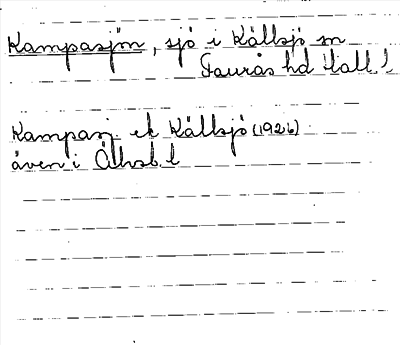 Kampasjön, sjö i Källsjö sn
Faurås hd Hall. l
Kampasj. ek Källsjö (1926)
även i Älvsb. l